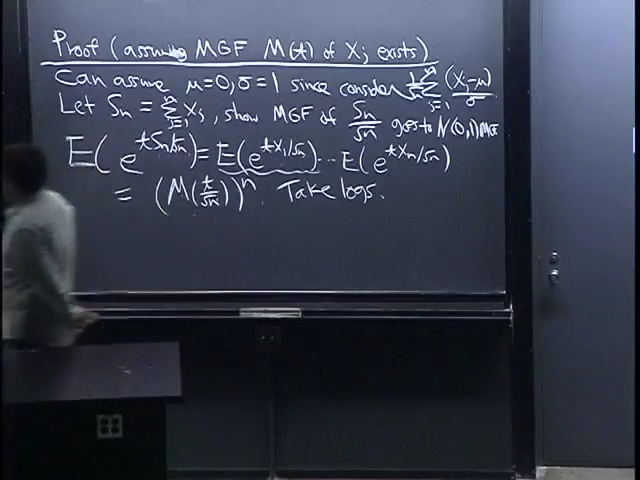 Proof (assuming MGF M(t) of Xj exists)
Can assume μ=0, σ=1 since consider 1/√n Σ_{j=1}^n (Xj-μ)/σ
Let Sn = Σ_{j=1}^n Xj, show MGF of Sn/√n goes to N(0,1) MGF
E(e^{tSn/√n}) = E(e^{tX1/√n}) ... E(e^{tXn/√n})
= (M(t/√n))^n. Take logs.